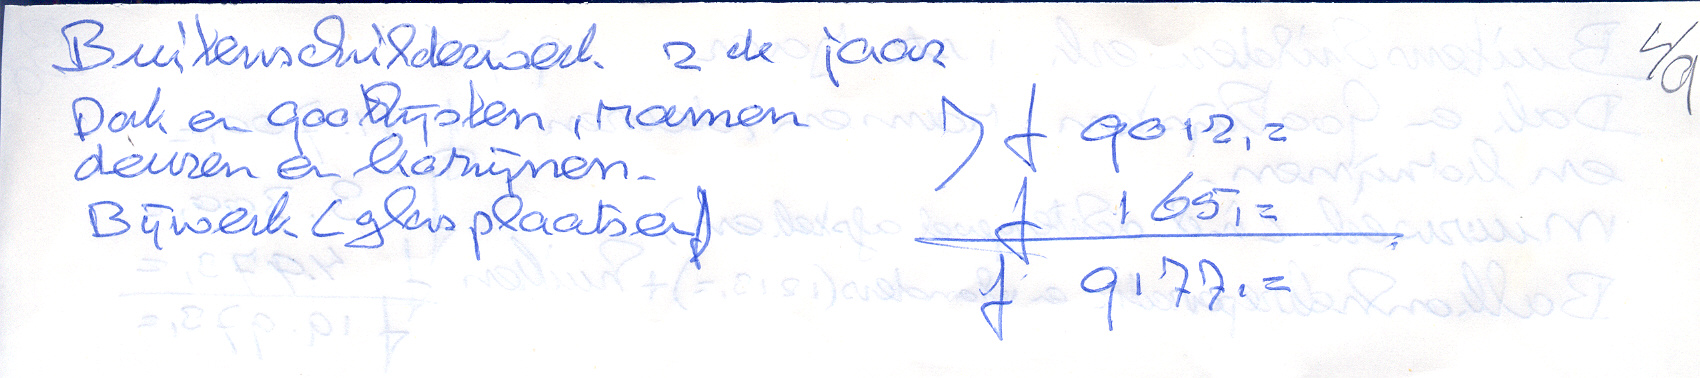 Buitenschilderwerk 2de jaar
4/9
Dak en gootlijsten, ramen } f 9012,=
deuren en kozijnen.
Bijwerk (glas plaatsen) f 165,=
f 9177,=